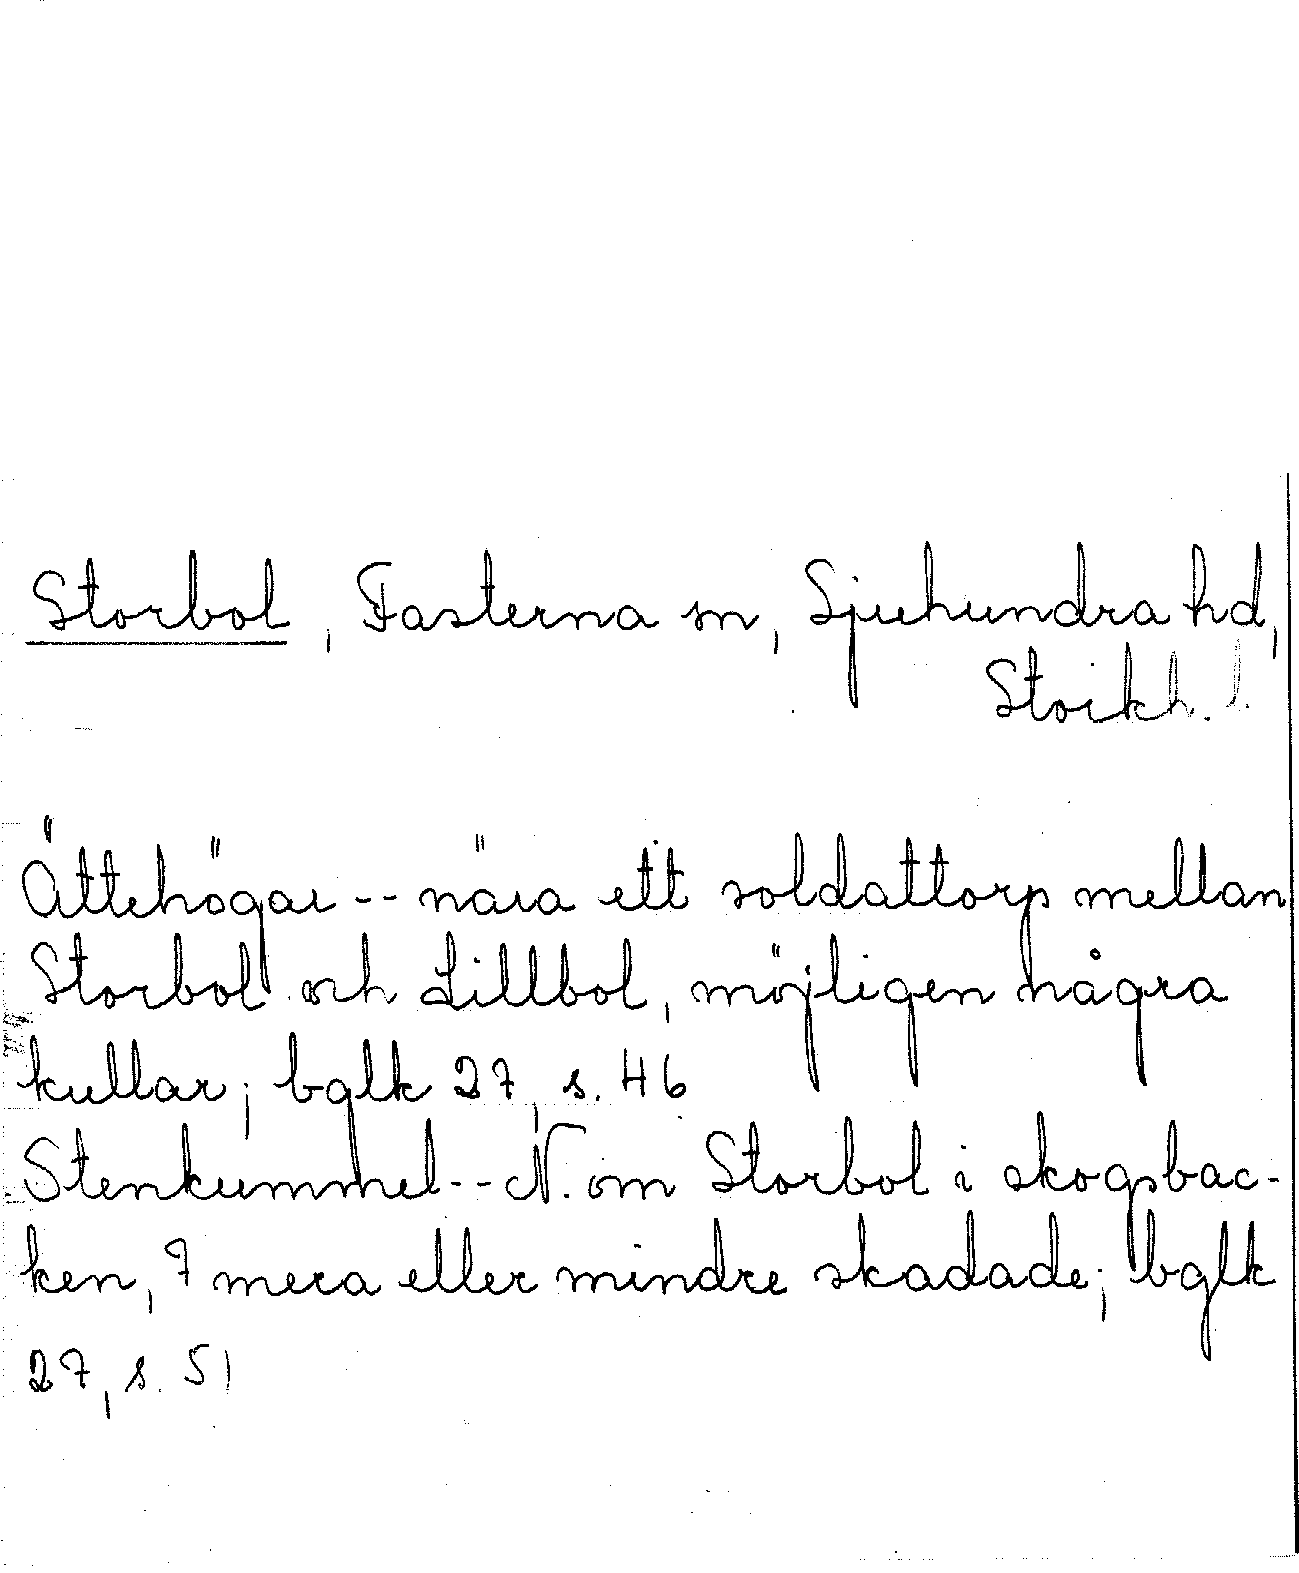 Storbol, Fasterna sn, Sjuhundra hd,
Stockh. l.
Ättehögar -- nära ett soldattorp mellan
Storbol och Lillbol, möjligen några
kullar; bglk 27, s. 46
Stenkummel -- N. om Storbol i skogsbac-
ken, 7 mera eller mindre skadade; bglk
27, s. 51